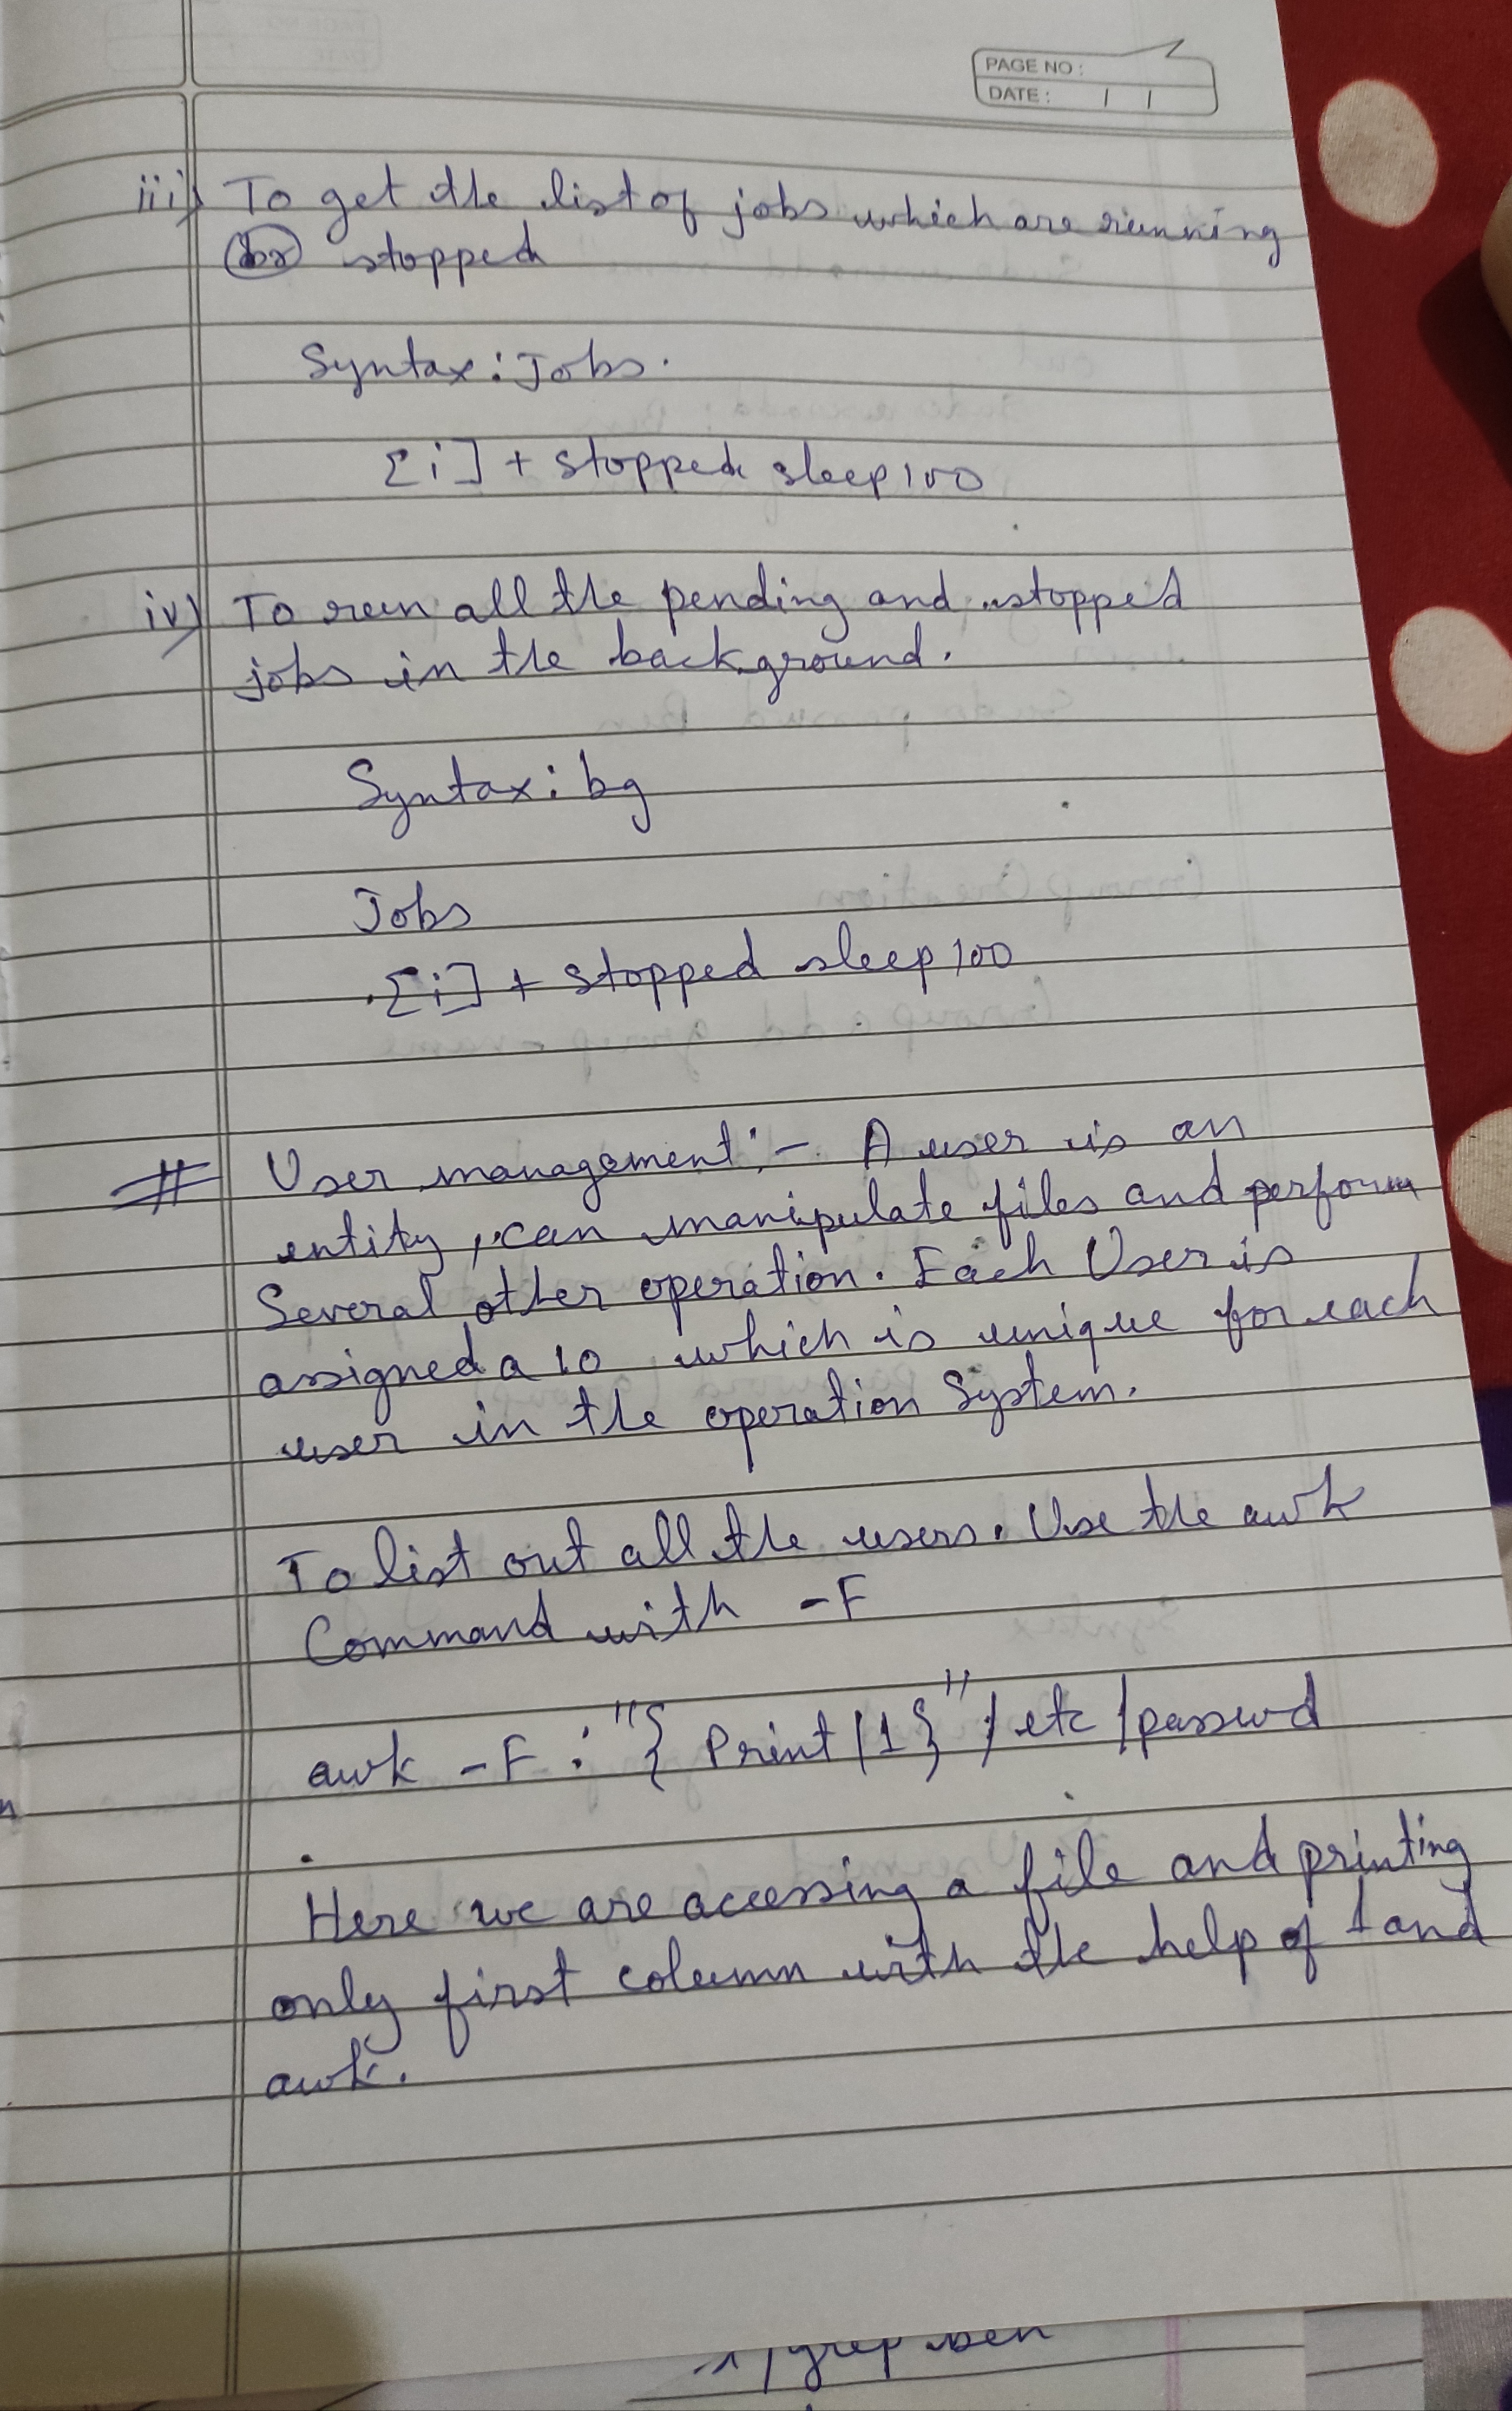 PAGE NO :
DATE : / /
iii) To get the list of jobs which are running
(or) stopped
Syntax : Jobs.
[i] + stopped sleep 100
iv) To run all the pending and stopped
jobs in the background.
Syntax : bg
Jobs
[i] + stopped sleep 100
# User management :- A user is an
entity, can manipulate files and perform
Several other operation. Each User is
assigned a 10 which is unique for each
user in the operation System.
To list out all the users. Use the awk
Command with -F
awk -F : "{ Print /1}" /etc/passwd
Here we are accessing a file and printing
only first column with the help of 1 and
awk.
grep ben